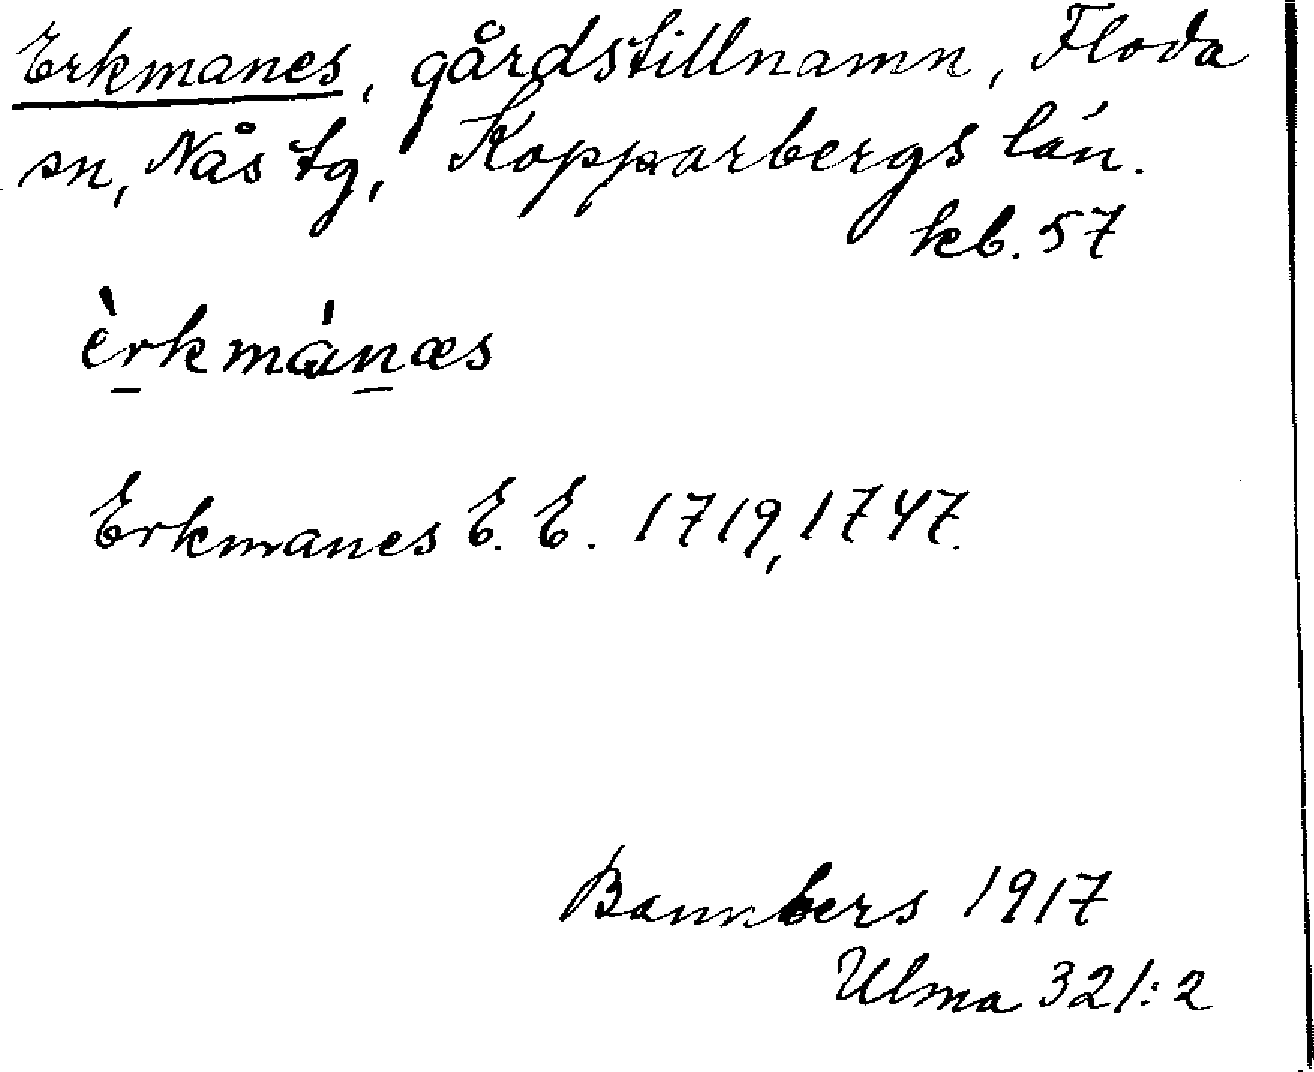 Erkmanes, gårdstillnamn, Floda
sn, Nås tg, Kopparbergs län.
kb. 57
èrkmànæs
Erkmanes E. E. 1719, 1747.
Bannbers 1917
Ulma 321:2